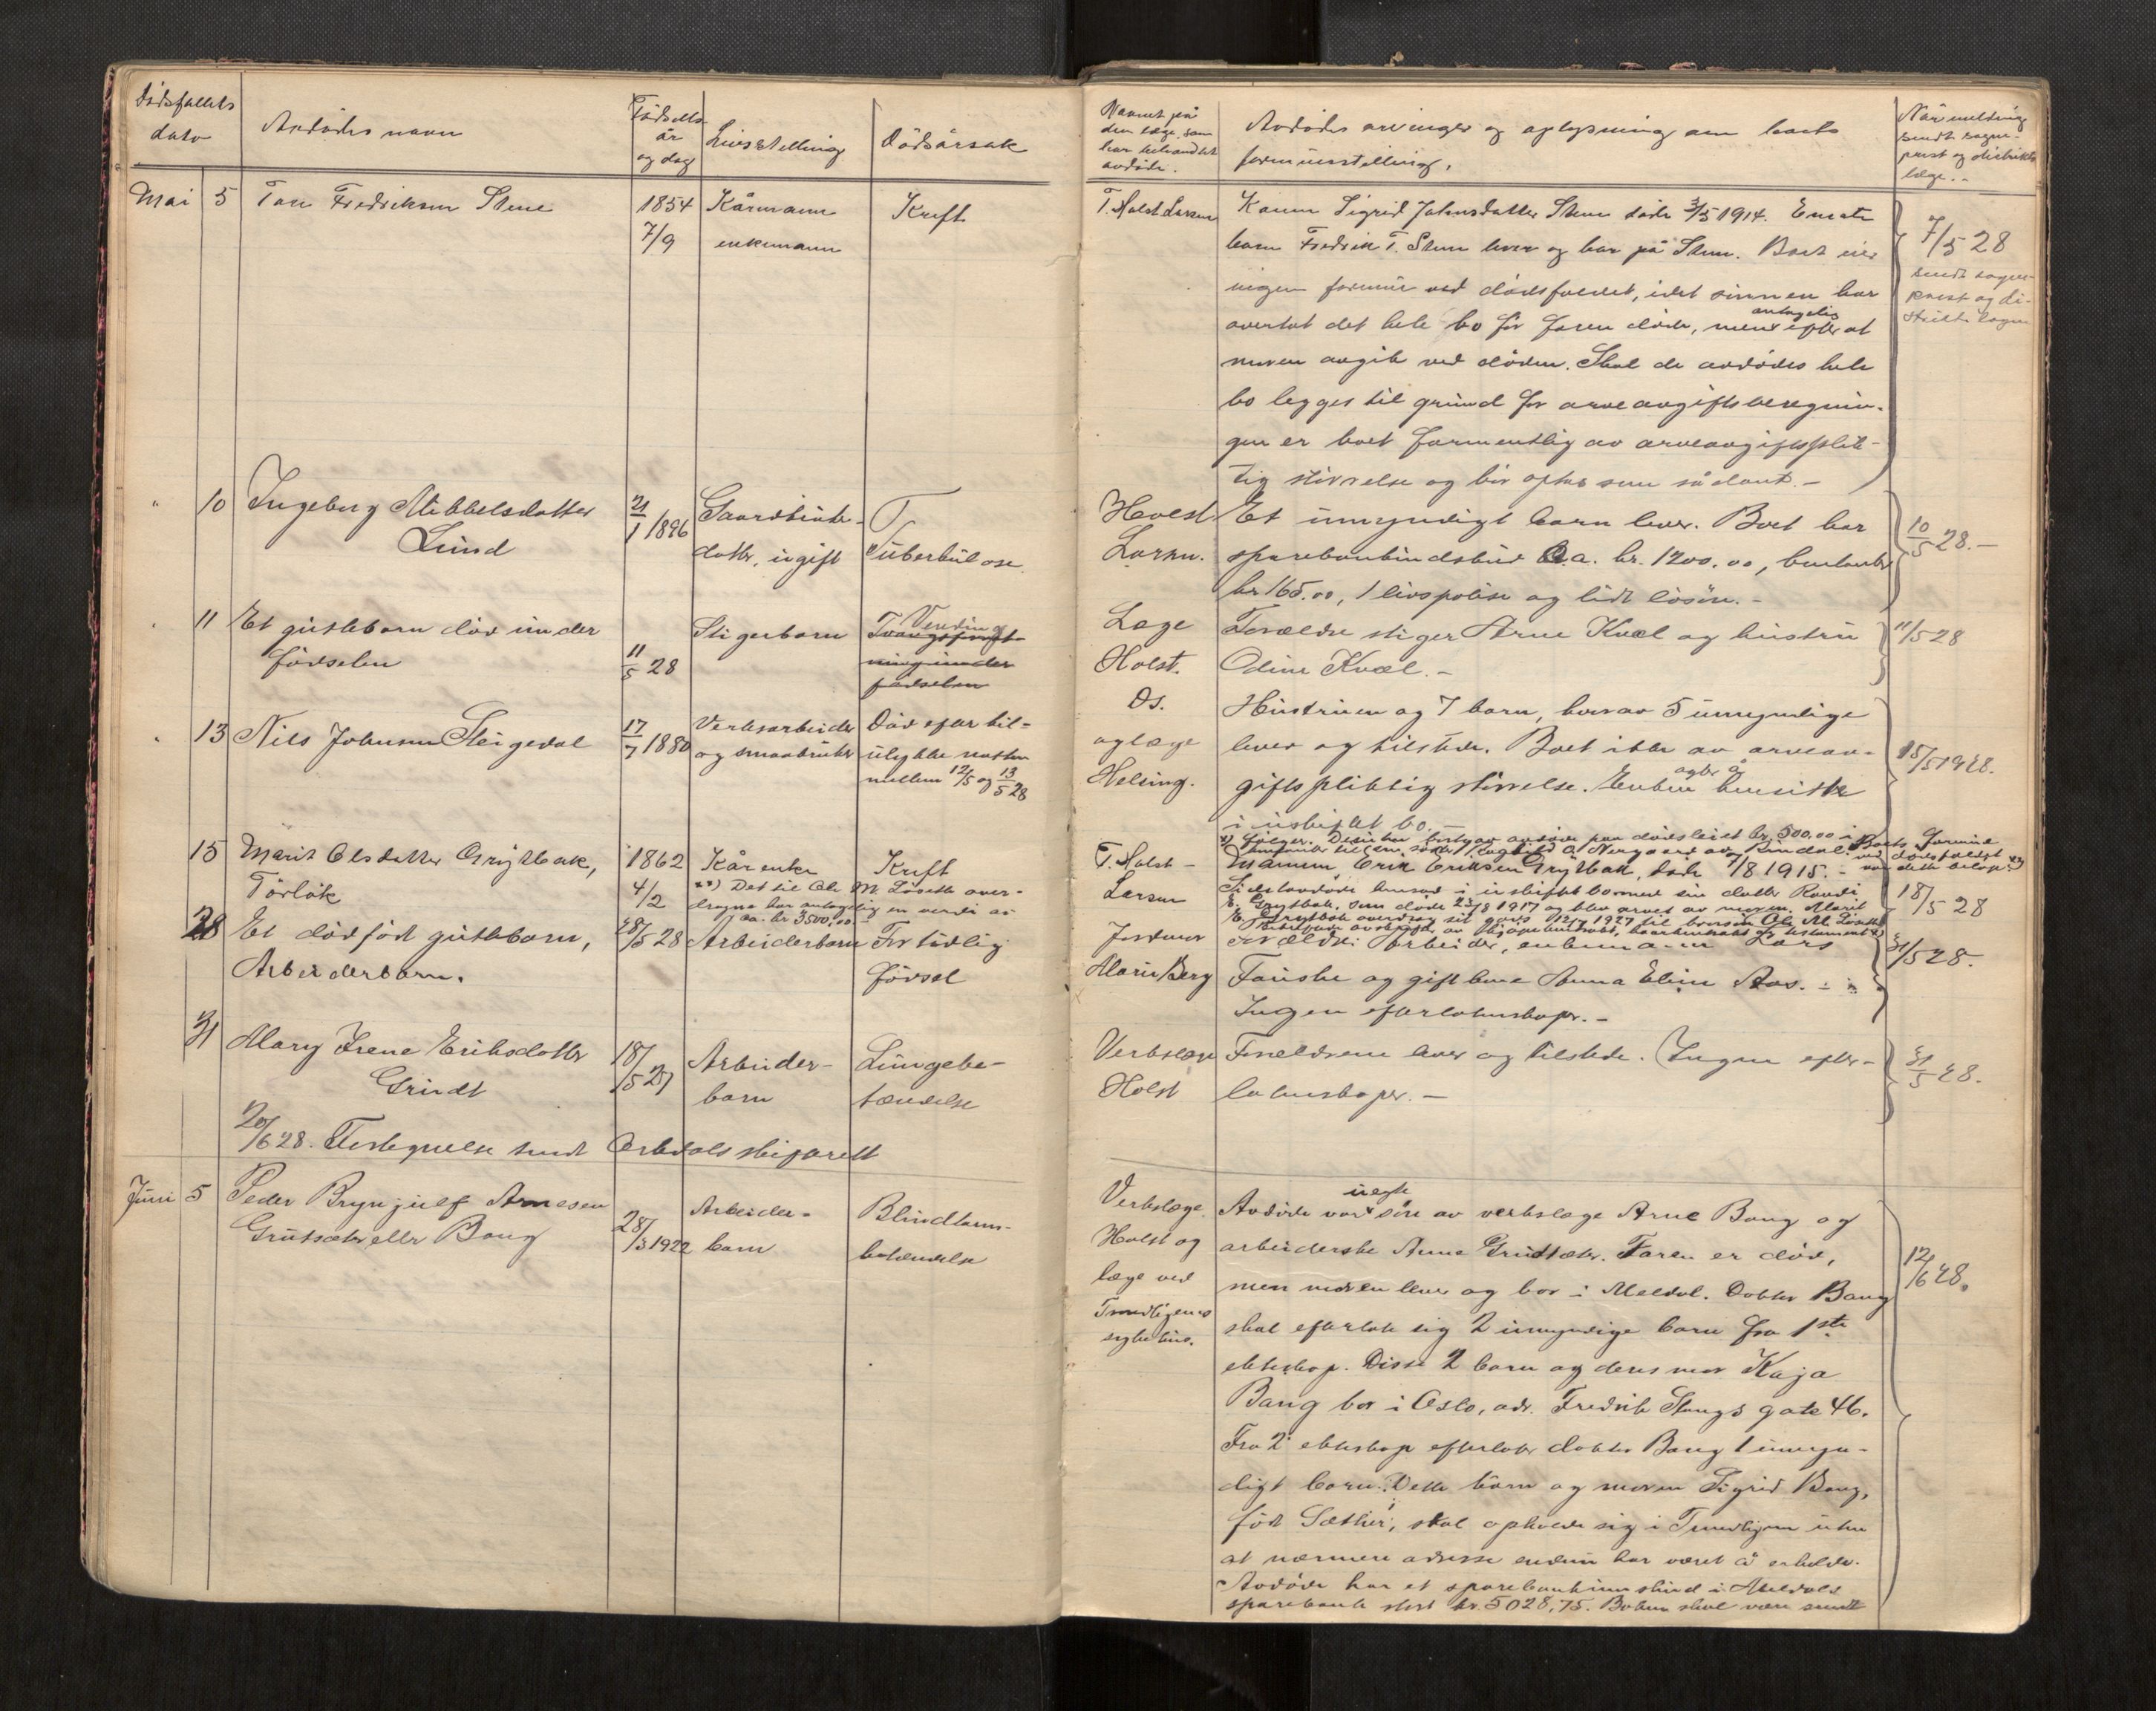 Dødsfallets
dato
Avdødes navn
Fødsels-
år
og dag
Livsstelling
Dødsårsak
Mai 5 Tore Fredriksen Stene 1854 Kårmann Kreft
7/9 enkemann
" 10 Ingeborg Mikkelsdatter 21/1 1896 Gaardbruker-
Lund datter, ugift Tuberkulose.
" 11 Et guttebarn død under Stigerbarn Vending
fødselen 11/5 28
fødselen
" 13 Nils Johnsen Steigedal 17/7 1880 Verksarbeider Død efter til-
og smaabruker ulykke natten
mellem 12/5 og 13/5 28
15 Marit Olsdatter Grytbak, 1862 Kårenke Kreft
Torlök 4/2 xx) Det til Ole M. Løseth over-
dragne har antagelig en verdi av
ca. kr 3500,00
28 Et dødfødt guttebarn, 28/5 28 Arbeiderbarn For tidlig
Arbeiderbarn. fødsel
31 Mary Irene Eriksdatter 18/5 27 Arbeider- Lungebe-
Grindt barn tændelse
20/6 28. Fortegnelse sendt Orkdals skiferett
Juni 5 Peder Brynjulf Arnesen Arbeider- Blindtarms-
Grutsæter eller Bang 28/3 1922 barn betændelse
Navnet på
den læge, som
har behandlet
avdøde.
Avdødes arvinger og oplysning om boets
formuesstilling.
Når melding
sendt sogne-
prest og distrikts-
læge.
T. Holst Larsen Konen Sigrid Johnsdatter Stene døde 3/5 1914. Eneste
barn Fredrik T. Stene lever og bor på Stene. Boet eier 7/5 28
ingen formue ved dødsfaldet, idet sønnen har sendt sogne-
prest og di-
antagelig
overtat det hele bo før faren døde, men efter at
moren avgik ved døden. Skal de avdødes hele
bo legges til grund for arveavgiftsberegnin-
gen er boet formentlig av arveavgiftsplik-
tig størrelse og bør optas som sådant.-
Holst Et umyndigt barn lever. Boet har 10/5 28.-
Larsen. sparebankinnskud ca. kr. 1200.00, kontanter
kr 165.00, 1 livspolise og lidt løsøre.-
Læge Forældre stiger Arne Kvål og hustru 11/5 28
Holst. Odine Kvål.-
Ds. Hustruen og 7 barn, hvorav 5 umyndige
og læge lever og tilstede. Boet ikke av arveav- 15/5 1928.
agter å
Helsing. giftspliktig størrelse. Enken hensitte
i uskiftet bo.-
T. Holst- Mannen, Erik Eriksen Grytbak, døde 1/8 1915.-
Larsen Sistavdøde hensad i uskiftet bo med sin datter Randi 18/5 28
E. Grytbak, som døde 23/8 1917 og blev arvet av moren. Marit
E. Grytbak overdrog sit gods 1927 til Ole M. Løseth
Jordmor Forældre: Arbeider, enkemann Lars 31/5 28.
Marie Berg Fauske og gift kone Anna Elin Aas.-
Ingen efterlatenskaper.-
Verkslæge Forældrene lever og tilstede. (Ingen efter- 31/5 28.
Holst latenskaper.-
uegte
Verkslæge Avdøde var søn av verkslæge Arne Bang og
Holst og arbeiderske Anne Grutsæter. Faren er død, 12/6 28.
læge ved men moren lever og bor i Meldal. Doktor Bang
Trondhjems skal efterlate sig 2 umyndige barn fra 1ste
sykehus. ekteskap. Disse 2 barn og deres mor Kaja
Bang bor i Oslo, adr. Fredrik Stangs gate 46.
Fra 2' ekteskap efterlater doktor Bang 1 umyn-
digt barn. Dette barn og moren Sigrid Bang,
født Sæther, skal opholde sig i Trondhjem uten
at nærmere adresse endnu har været å erholde.
Avdøde har et sparebankinnskud i Meldals
sparebank stort kr. 5028,75. Boken skal være sendt